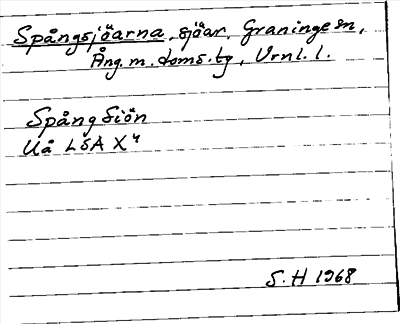 Spångsjöarna, sjöar, Graninge sn,
Ång. m. doms. tg, Vrnl. l.
Spång Siön
Uå LSA X4
S. H 1968